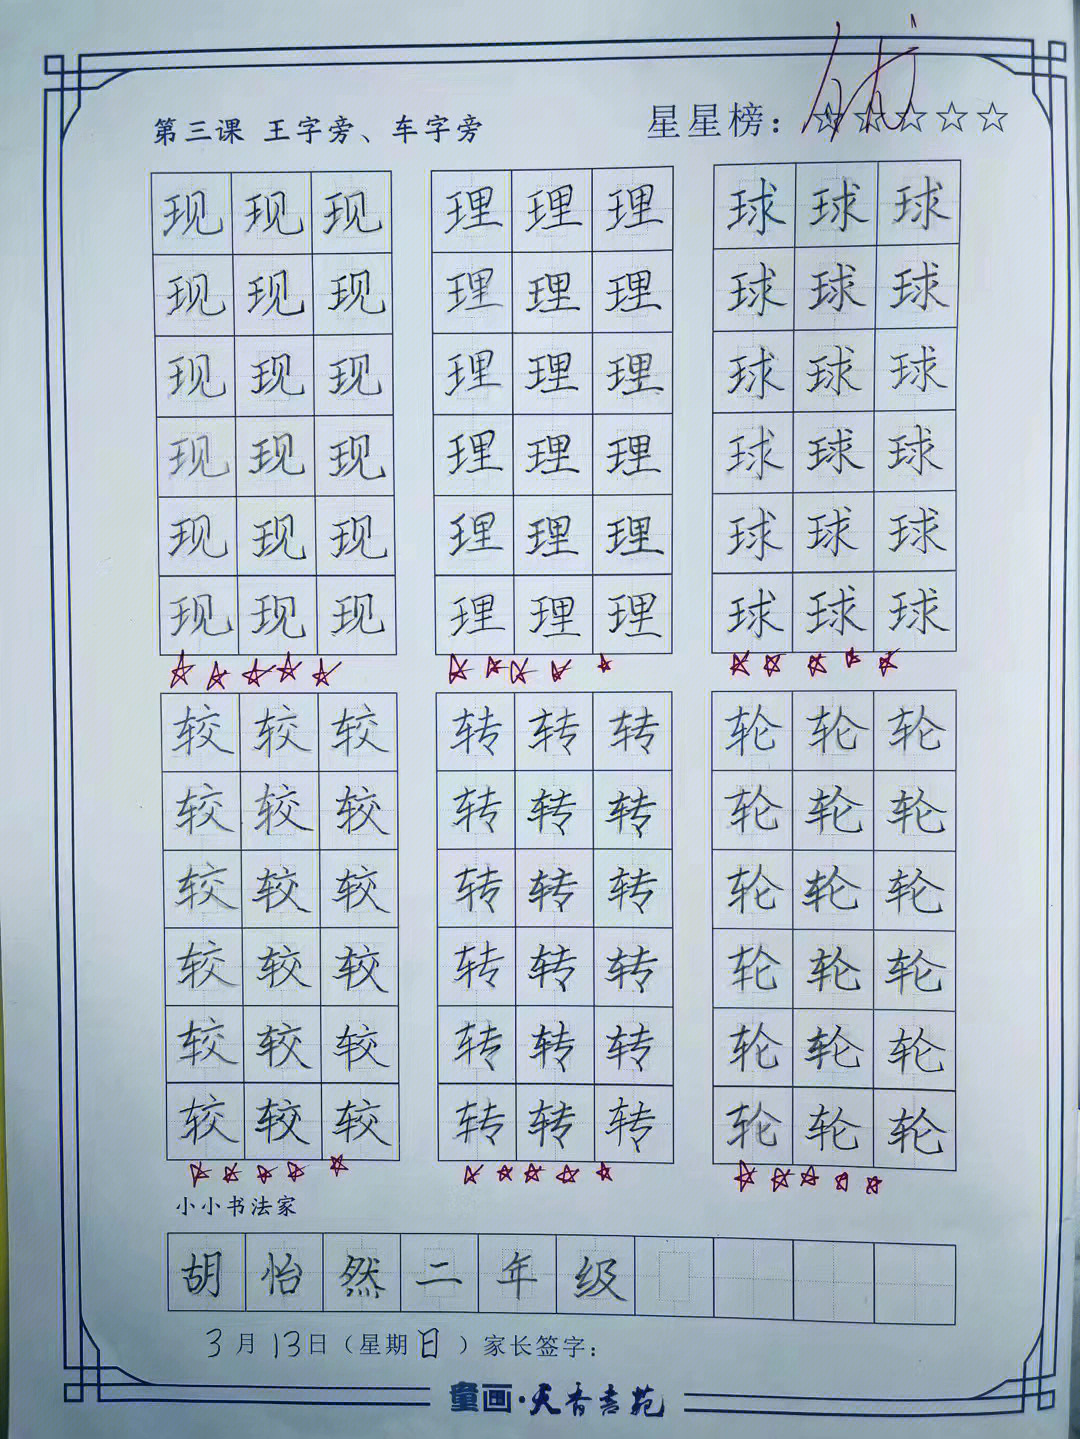 第三课 王字旁、车字旁 星星榜：☆☆☆☆☆
现现现 理理理 球球球
现现现 理理理 球球球
现现现 理理理 球球球
现现现 理理理 球球球
现现现 理理理 球球球
现现现 理理理 球球球
较较较 转转转 轮轮轮
较较较 转转转 轮轮轮
较较较 转转转 轮轮轮
较较较 转转转 轮轮轮
较较较 转转转 轮轮轮
较较较 转转转 轮轮轮
小小书法家
胡怡然二年级
3月13日（星期日）家长签字：
童画·天香书苑